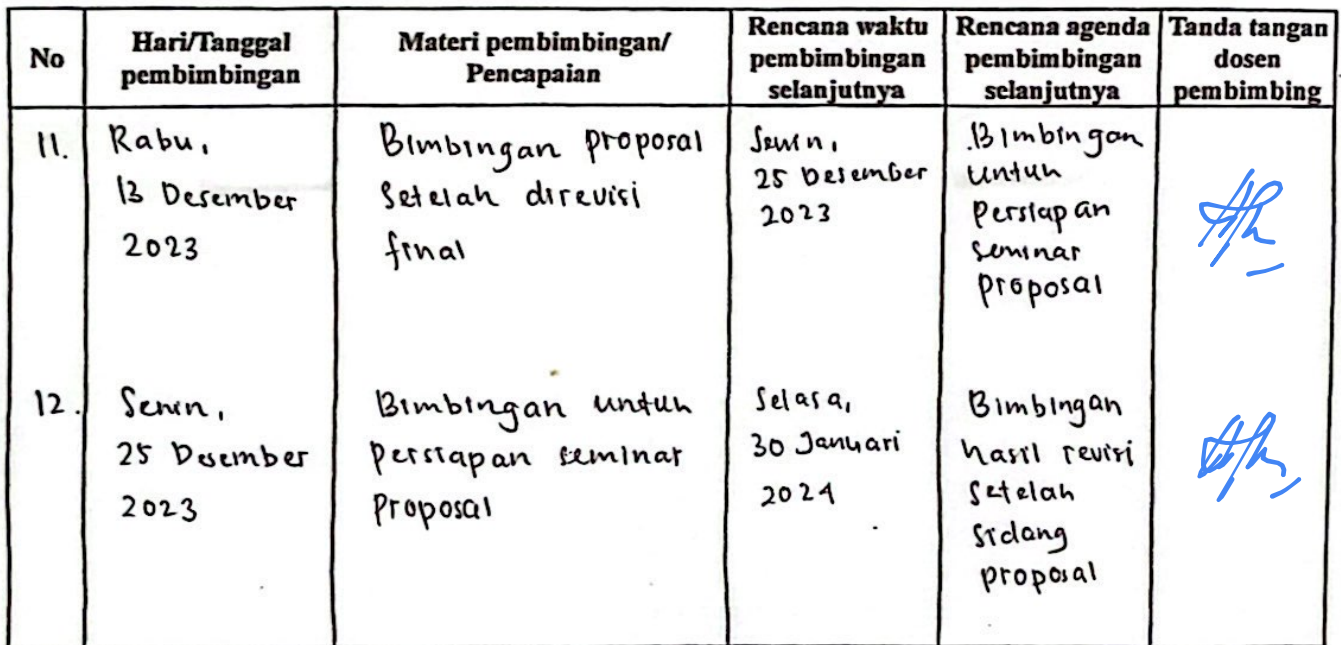 No
Hari/Tanggal
pembimbingan
Materi pembimbingan/
Pencapaian
Rencana waktu
pembimbingan
selanjutnya
Rencana agenda
pembimbingan
selanjutnya
Tanda tangan
dosen
pembimbing
11.
Rabu,
13 Desember
2023
Bimbingan proposal
Setelah direvisi
final
Senin,
25 Desember
2023
Bimbingan
untuk
Persiapan
seminar
proposal
12.
Senin,
25 Desember
2023
Bimbingan untuk
persiapan seminar
Proposal
Selasa,
30 Januari
2024
Bimbingan
hasil revisi
Setelah
sidang
proposal